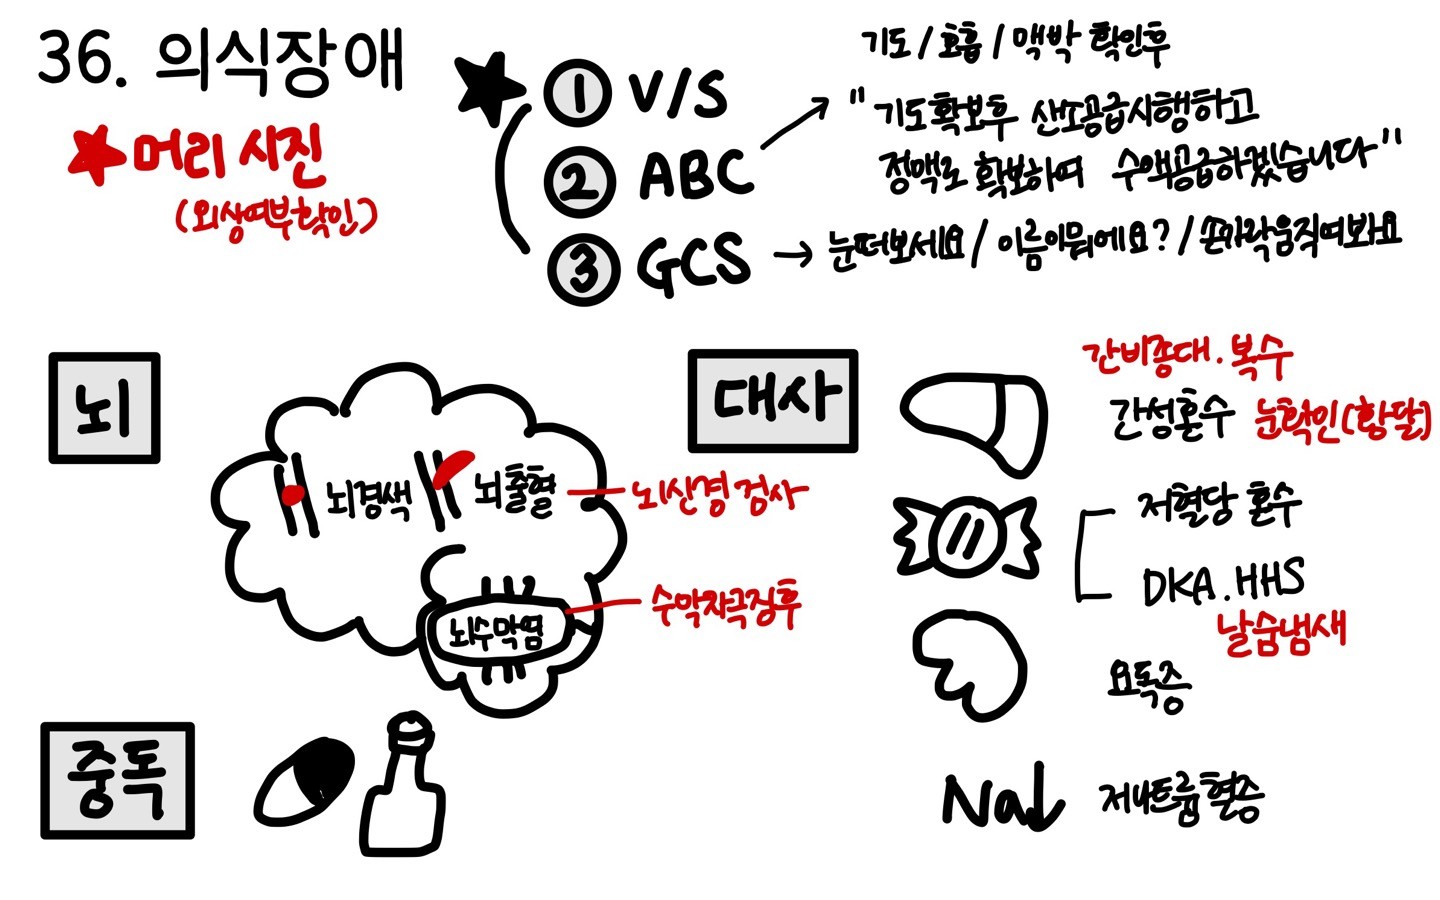 36. 의식장애
★머리 시진
(외상여부확인)
★
① V/S
② ABC
③ GCS
기도/호흡/맥박 확인후
"기도확보후 산소공급시행하고
정맥로 확보하여 수액공급하겠습니다"
→ 눈떠보세요/이름이뭐에요?/손가락움직여봐요
뇌
뇌경색
뇌출혈
뇌신경 검사
뇌수막염
수막자극징후
대사
간비종대. 복수
간성혼수 눈확인(황달)
저혈당 혼수
DKA. HHS
날숨냄새
요독증
Na↓ 저나트륨혈증
중독